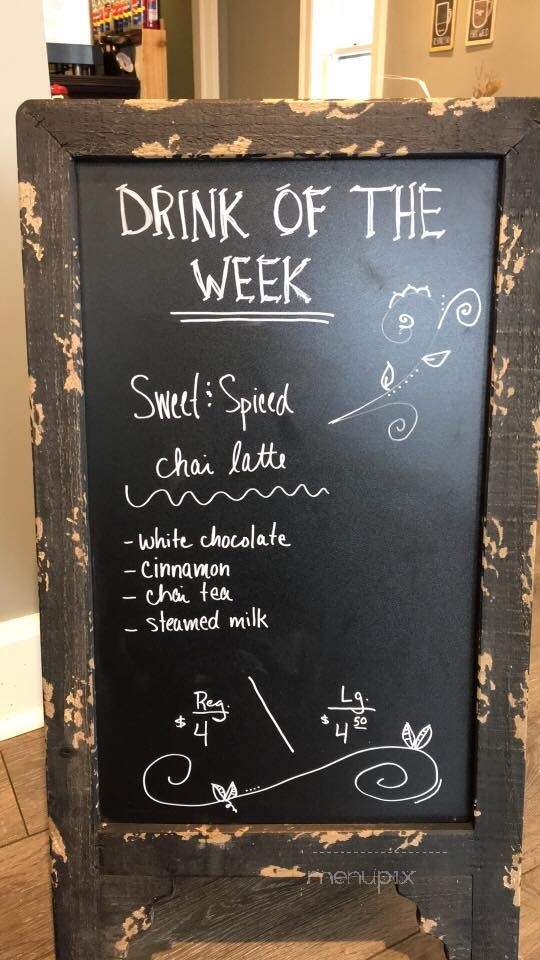 DRINK OF THE
WEEK
Sweet & Spiced
chai latte
- white chocolate
- cinnamon
- chai tea
- steamed milk
Reg. Lg.
$4 $4 50
menupix